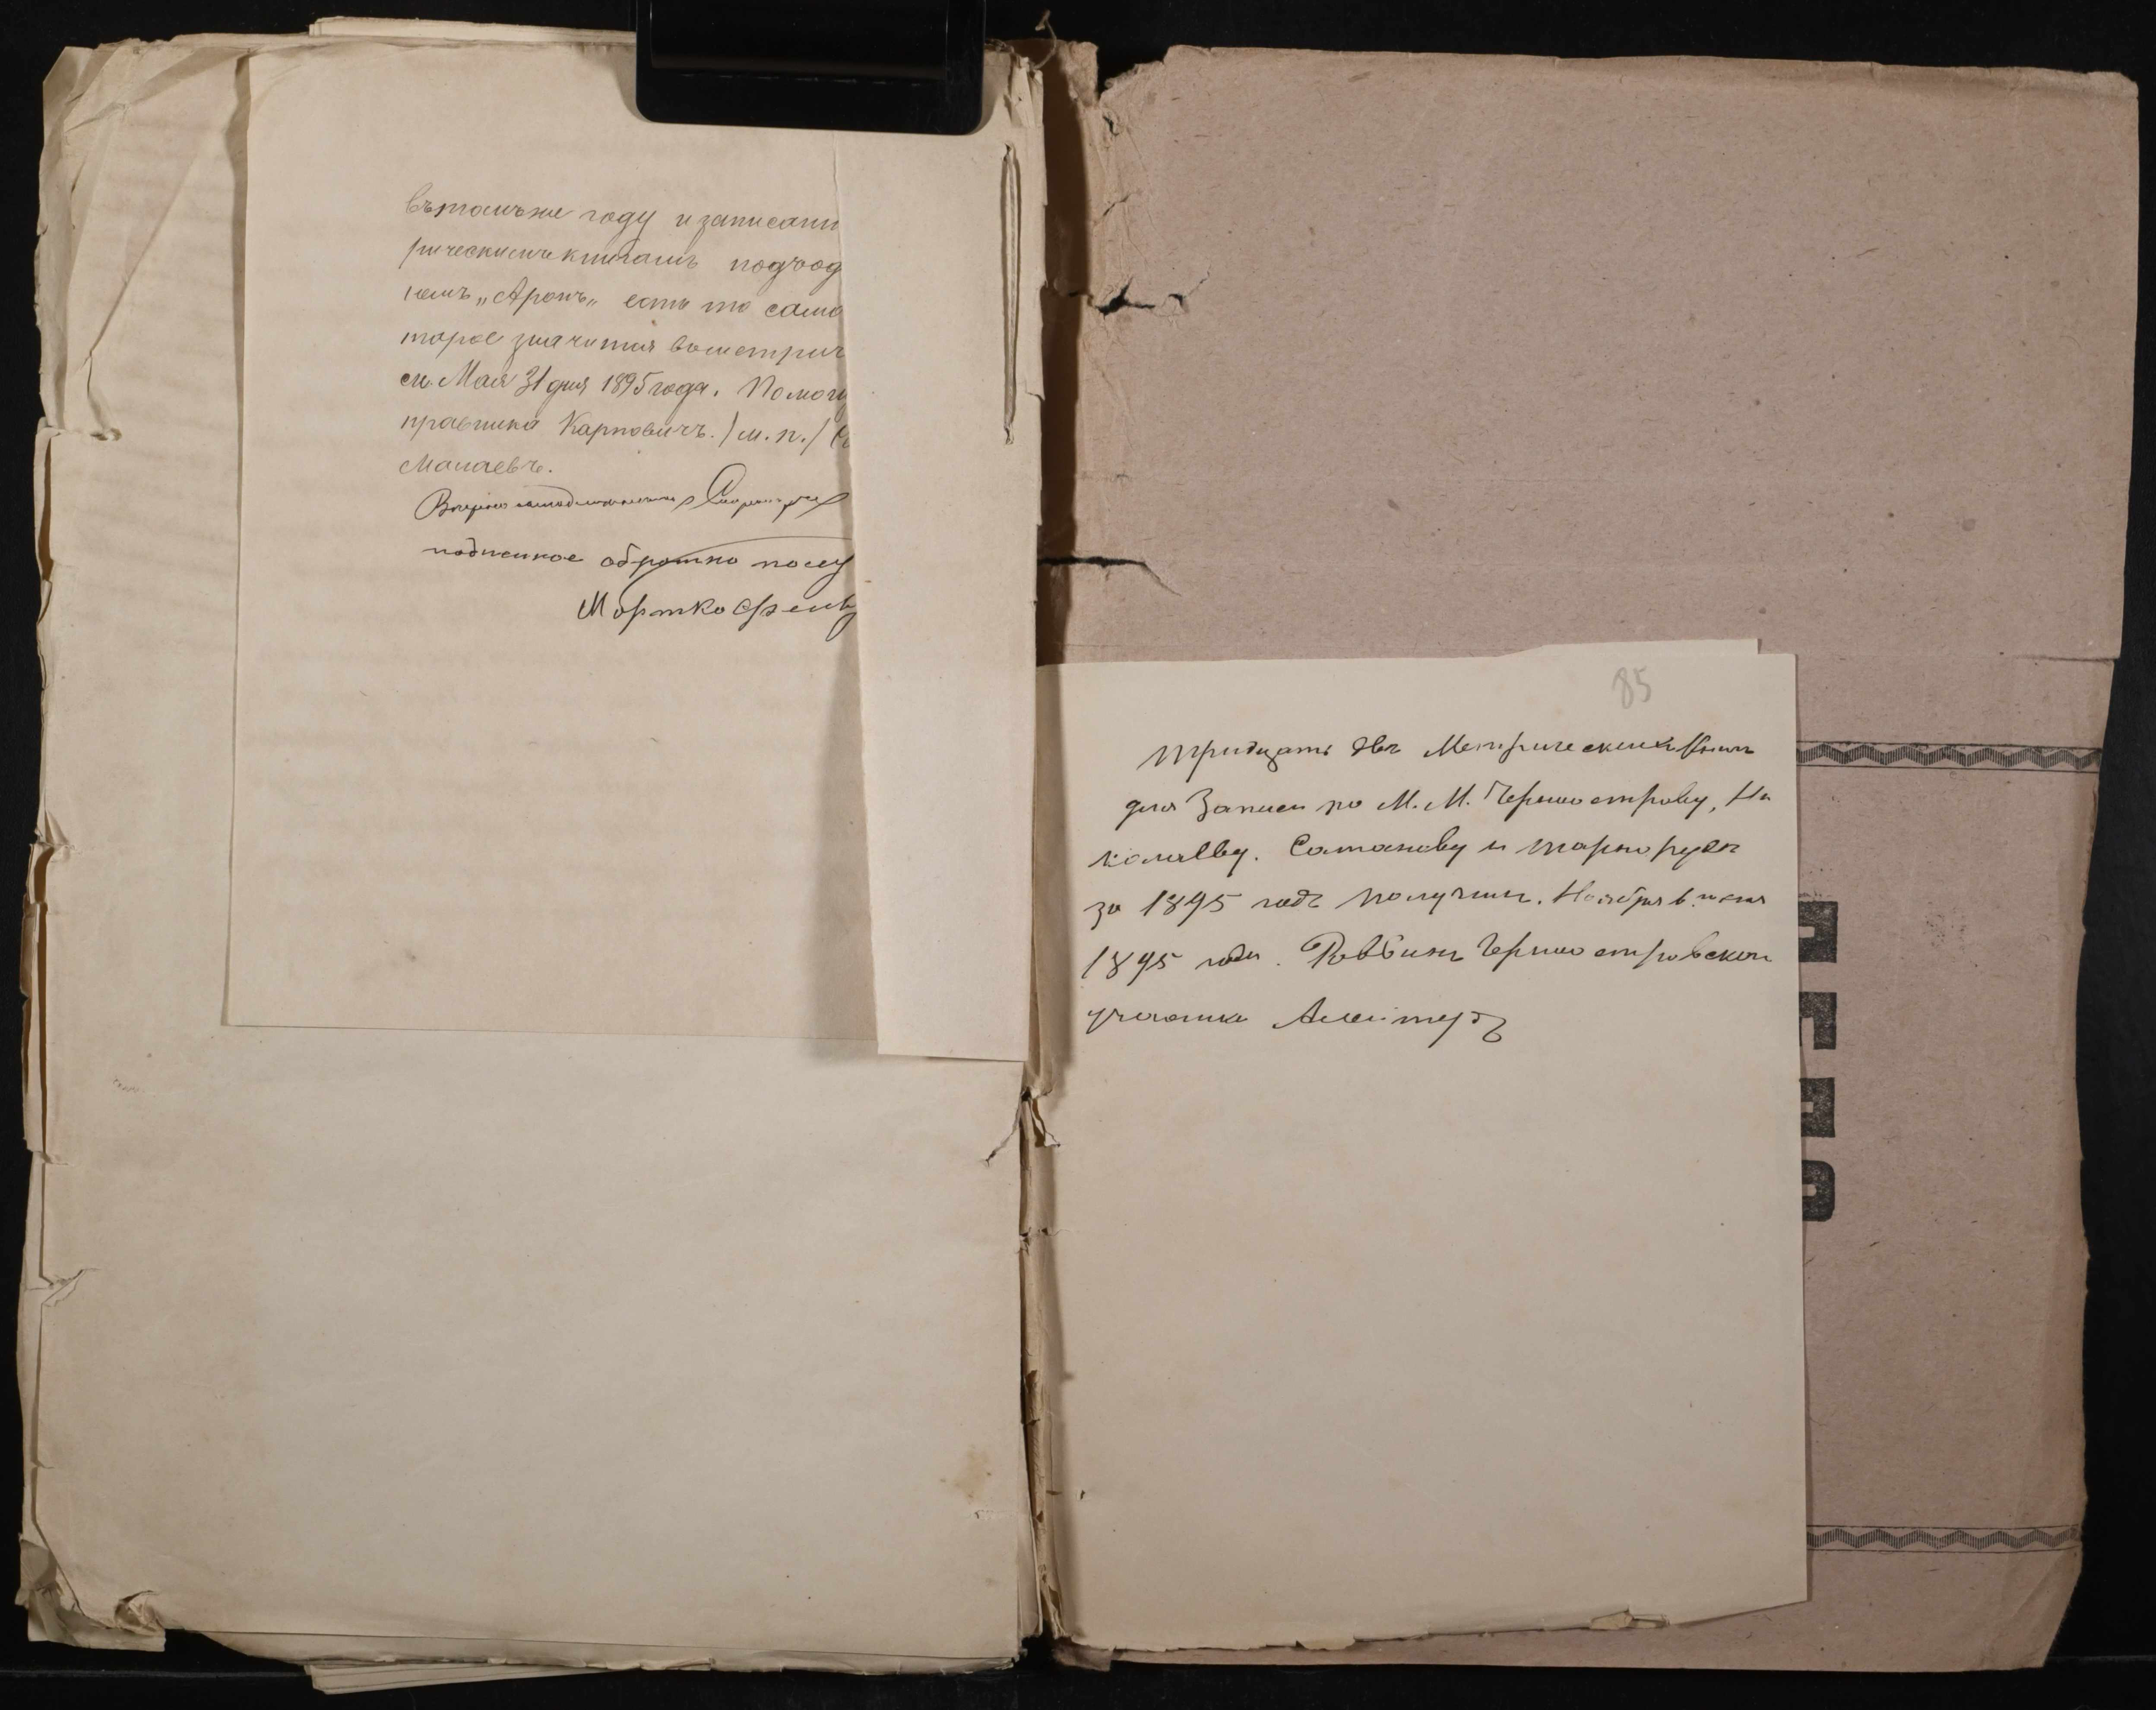 въ томъ же году и записанн
рическимъ книгамъ подъ год
немъ „Аронъ„ есть то само
торое значится въ метрич
см. Мая 31 дня 1895 года. Помощ
правника Карповичъ. / м. п. /
Мамаевъ.
подлинное обратно полу
Мортко
85
Тридцать двѣ Метрическихъ Книгъ
для Записи по М. М. Черноострову, Ни
колаеву. Сатанову и Тарнорудѣ
за 1895 годъ получилъ. Ноября 6 дня
1895 года. Раввинъ Черноостровскаго
участка